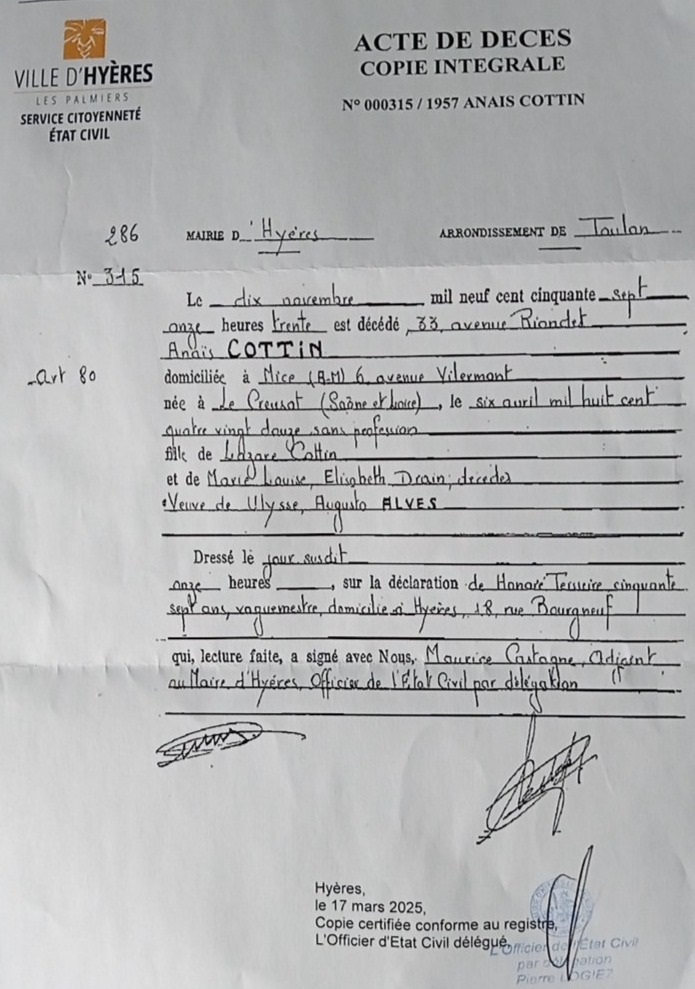 VILLE D'HYÈRES
LES PALMIERS
SERVICE CITOYENNETÉ
ÉTAT CIVIL
ACTE DE DECES
COPIE INTEGRALE
N° 000315 / 1957 ANAIS COTTIN
286 MAIRIE D'Hyères ARRONDISSEMENT DE Toulon
N° 315
Le dix novembre mil neuf cent cinquante sept
onze heures trente est décédé, 33, avenue Riondet
Anaïs COTTIN
Art 80
domiciliée à Nice (A-M) 6, avenue Vilermont
née à Le Creusot (Saône et Loire), le six avril mil huit cent
quatre vingt douze, sans profession
fille de Lazare Cottin
et de Marie Louise, Elisabeth Drain, décédés
Veuve de Ulysse, Augusto ALVES
Dressé le jour susdit
onze heures, sur la déclaration de Honoré Teisseire cinquante
sept ans, vaguemestre, domicilié à Hyères, 18, rue Bourgneuf
qui, lecture faite, a signé avec Nous, Maurice Castagne, Adjoint
au Maire d'Hyères, Officier de l'Etat Civil par délégation
Hyères,
le 17 mars 2025,
Copie certifiée conforme au registre,
L'Officier d'Etat Civil délégué,
L'Officier de l'Etat Civil
par délégation
Pierre